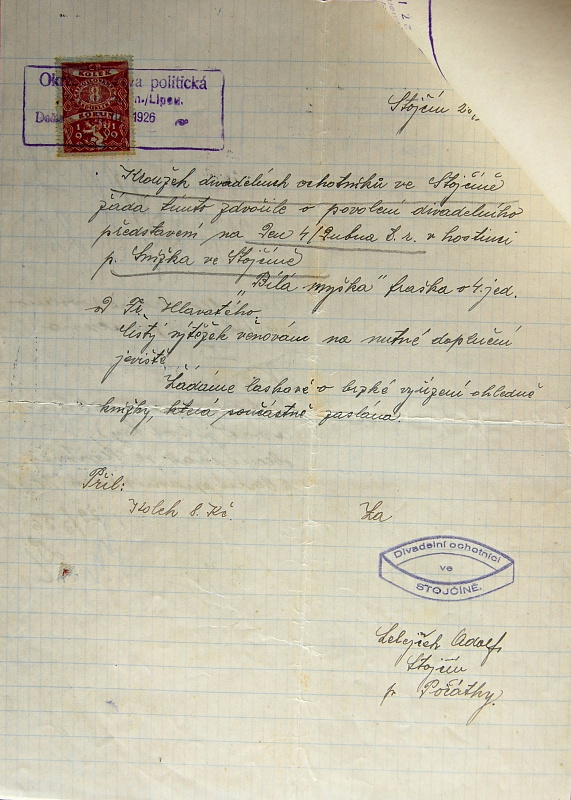 politická
Lipou.
1926
KOLEK
8
KORUN
1919
Stojčín
Kroužek divadelních ochotníků ve Stojčíně
žádá tímto zdvořile o povolení divadelního
představení na den 4/Dubna t. r. v hostinci
p. Snížka ve Stojčíně
"Bílá myška" fraška o 4. jed.
od Fr. Hlavatého.
Čistý výtěžek věnován na nutné doplnění
jeviště.
Žádáme laskavě o brzké vyřízení ohledně
knížky, která součastně zaslána.
Příl:
Kolek 8. Kč.
Za
Divadelní ochotníci
ve
STOJČÍNĚ.
Adolf,
Stojčín
p. Počátky.